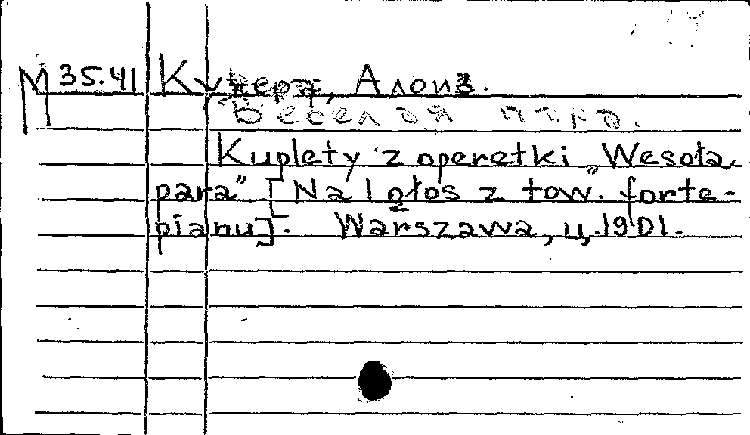 М 35.41 Кучера, Алоиз.
Веселая пара.
Kuplety z operetki „Wesoła
para" [Na 1 głos z tow. forte-
pianu]. Warszawa, ц. 1901.